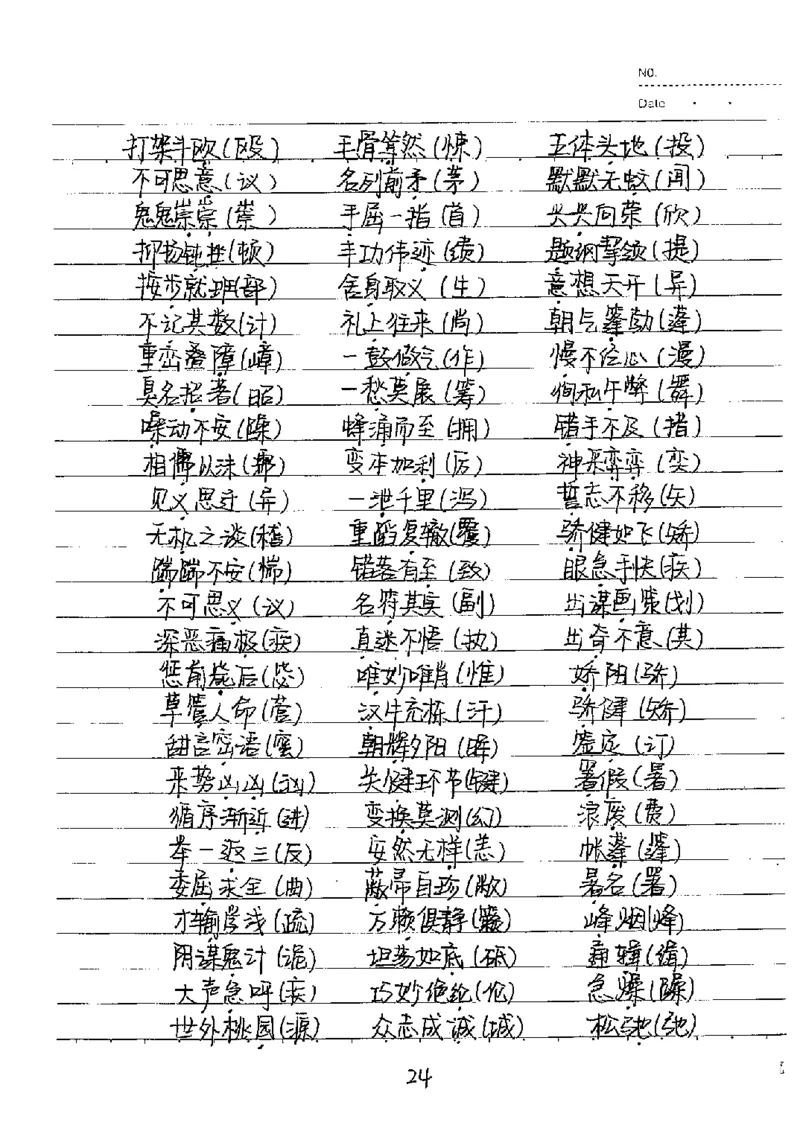 NO.
Date
打架斗欧(殴) 毛骨竦然(悚) 五体头地(投)
不可思意(议) 名列前矛(茅) 默默无蚊(闻)
鬼鬼崇崇(祟) 手屈一指(首) 兴兴向荣(欣)
抑扬钝挫(顿) 丰功伟迹(绩) 题纲挈领(提)
按步就班(部) 舍身取义(生) 意想天开(异)
不记其数(计) 礼上往来(尚) 朝气篷勃(蓬)
重峦叠障(嶂) 一鼓做气(作) 慢不经心(漫)
臭名招著(昭) 一愁莫展(筹) 徇私午弊(舞)
噪动不安(躁) 蜂涌而至(拥) 错手不及(措)
相儒以沫(濡) 变本加利(厉) 神采弈弈(奕)
见义思迁(异) 一泄千里(泻) 誓志不移(矢)
无机之谈(稽) 重蹈复辙(覆) 骄健如飞(矫)
踹踹不安(惴) 错落有至(致) 眼急手快(疾)
不可思义(议) 名符其实(副) 出谋画策(划)
深恶痛极(疾) 直迷不悟(执) 出奇不意(其)
惩前毙后(毖) 唯妙唯肖(惟) 娇阳(骄)
草管人命(菅) 汉牛充栋(汗) 骄健(矫)
甜言密语(蜜) 朝辉夕阳(晖) 签定(订)
来势凶凶(汹) 关健环节(键) 署假(暑)
循序渐近(进) 变换莫测(幻) 浪废(费)
举一返三(反) 安然无样(恙) 帐蓬(篷)
委屈求全(曲) 蔽帚自珍(敝) 暑名(署)
才输学浅(疏) 万赖俱静(籁) 峰烟(烽)
阴谋鬼计(诡) 坦荡如底(砥) 编辑(缉)
大声急呼(疾) 巧妙绝纶(伦) 急燥(躁)
世外桃园(源) 众志成诚(城) 松驰(弛)
24